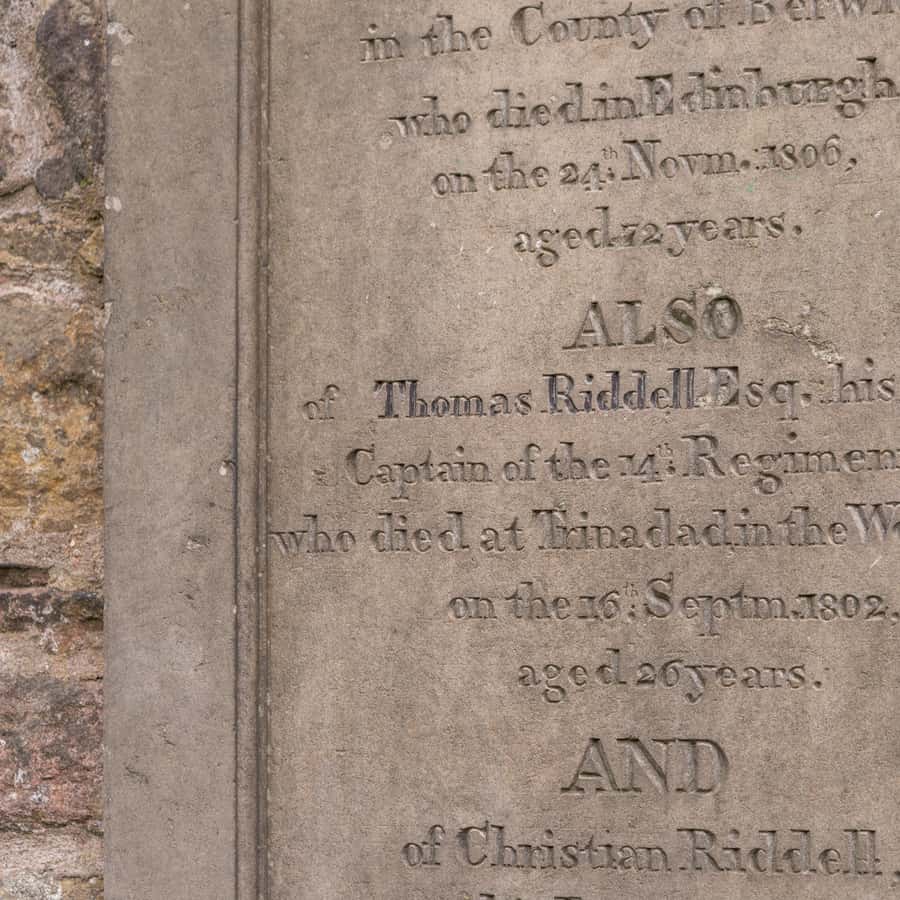 in the County of Berwi
who died in Edinburgh
on the 24th. Novm. 1806,
aged 72 years.
ALSO
of Thomas Riddell Esq. his
Captain of the 14th. Regimen
who died at Trinadad, in the We
on the 16th. Septm. 1802,
aged 26 years.
AND
of Christian Riddell,